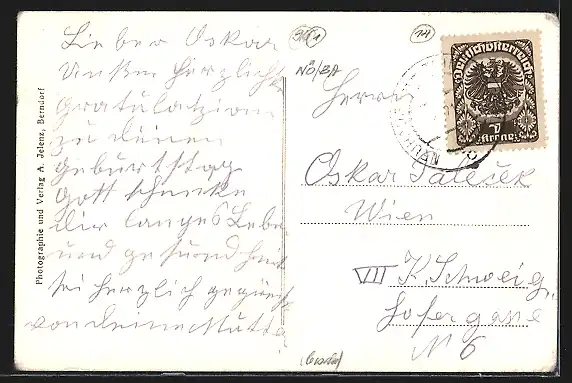 Lieber Oskar
Unsere herzlichste
Gratulatzion
zu deinen
Geburtstag
Gott schenke
dir langes Lebe
und gesundheit
sei herzlich gegüßt
von deine Mutter
Photographie und Verlag A. Jelenz, Berndorf
14
NÖ/BA
Herrn
Deutschösterreich
1
Krone
Oskar Paleček
Wien
VII K. Schweig.
Hofergasse
N 6